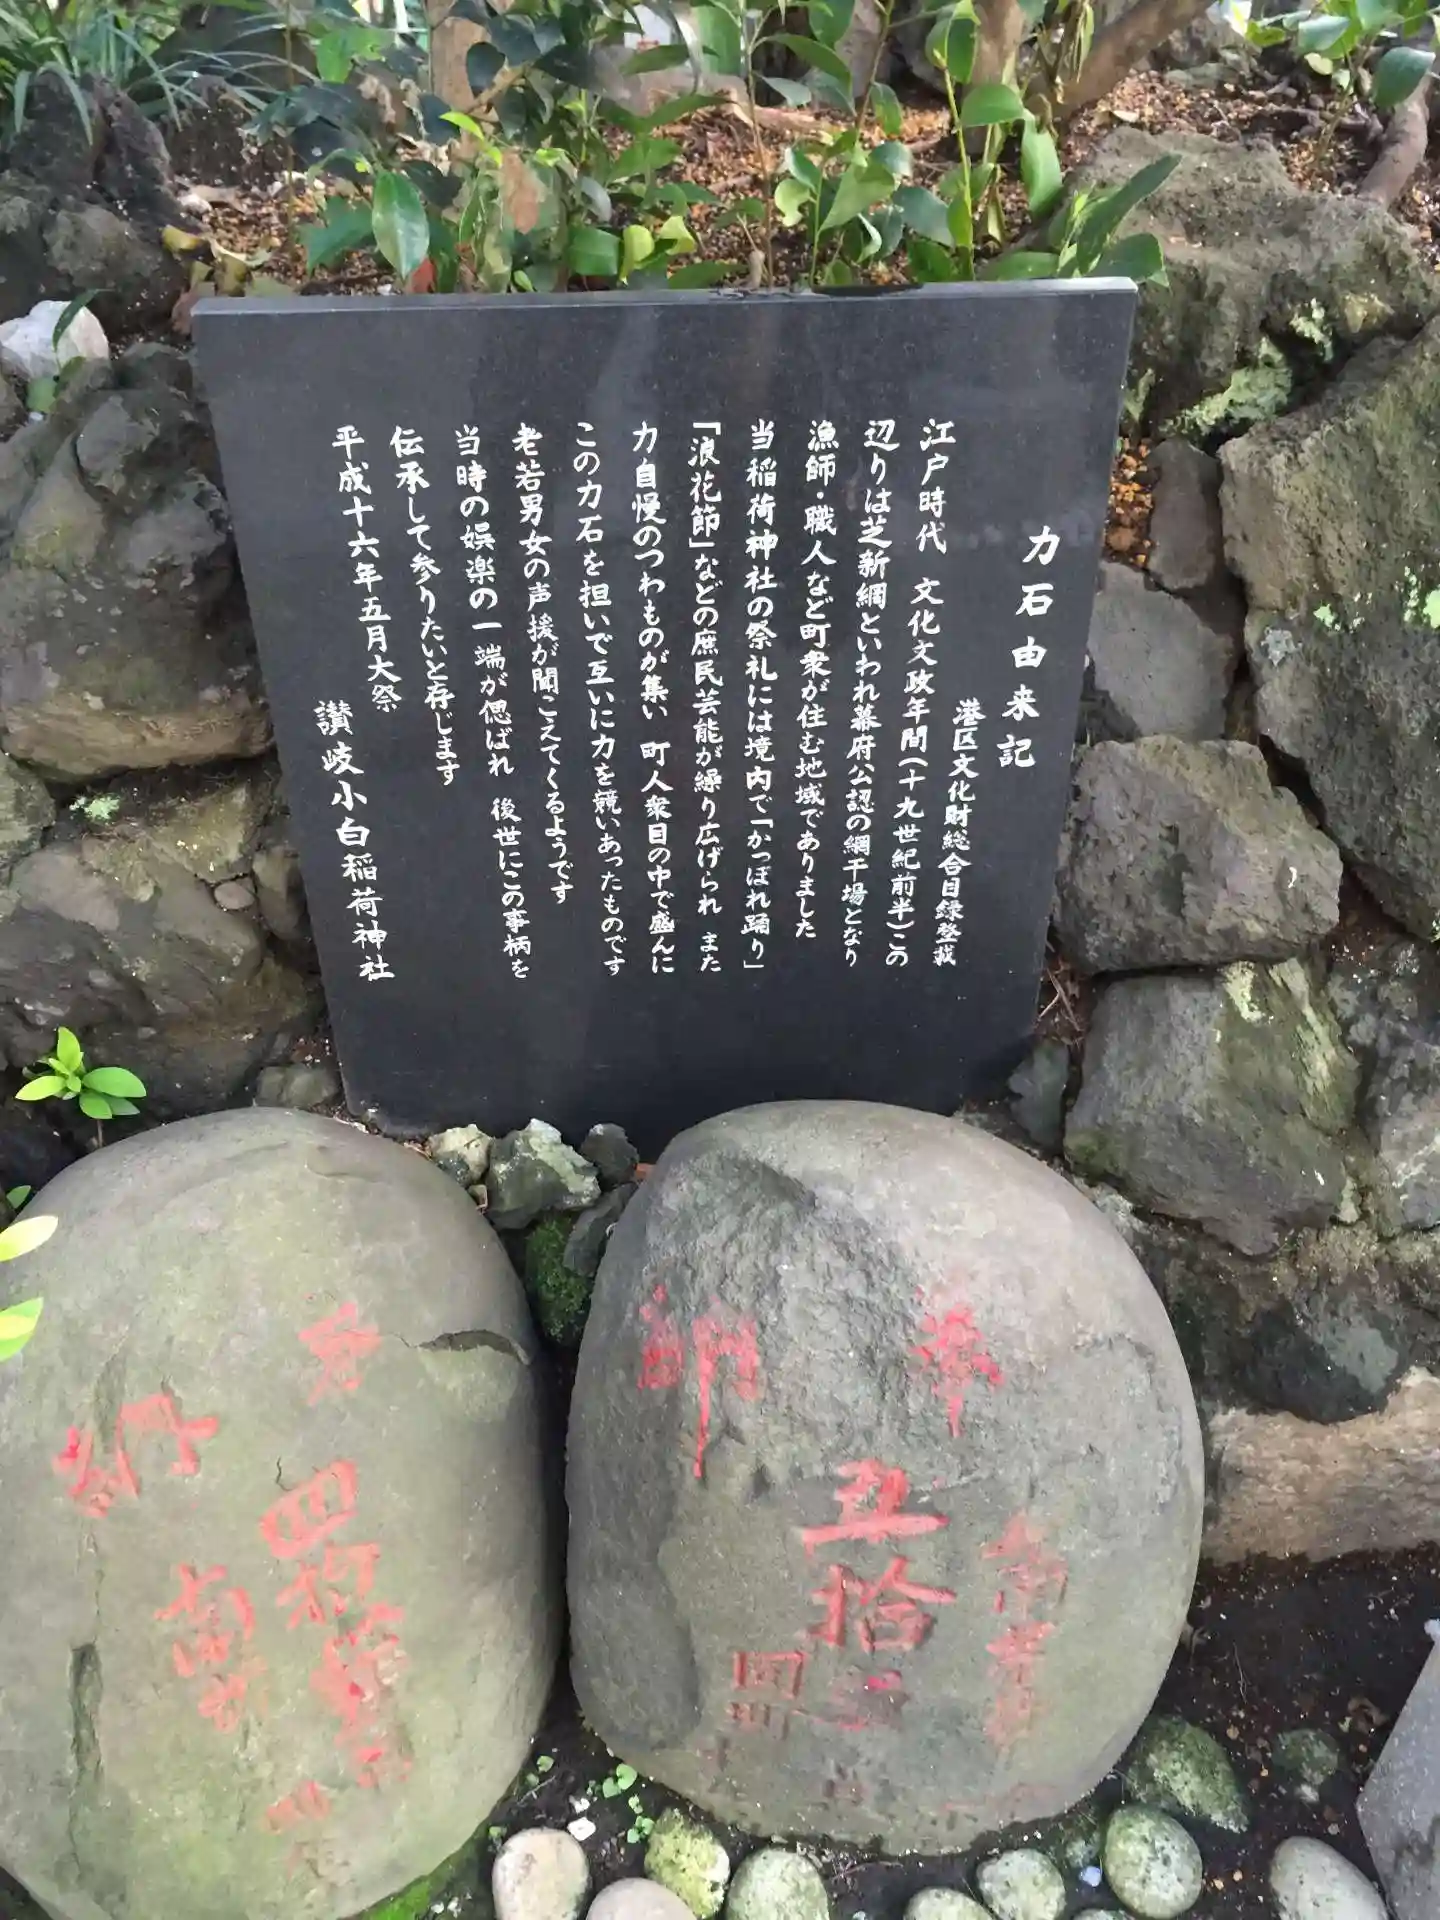 力石由来記
港区文化財総合目録登載
江戸時代 文化文政年間（十九世紀前半）この
辺りは芝新網といわれ幕府公認の網干場となり
漁師・職人など町衆が住む地域でありました
当稲荷神社の祭礼には境内で「かっぽれ踊り」
「浪花節」などの庶民芸能が繰り広げられ また
力自慢のつわものが集い 町人衆目の中で盛んに
この力石を担いで互いに力を競いあったものです
老若男女の声援が聞こえてくるようです
当時の娯楽の一端が偲ばれ 後世にこの事柄を
伝承して参りたいと存じます
平成十六年五月大祭
讃岐小白稲荷神社
奉
五拾
四
南